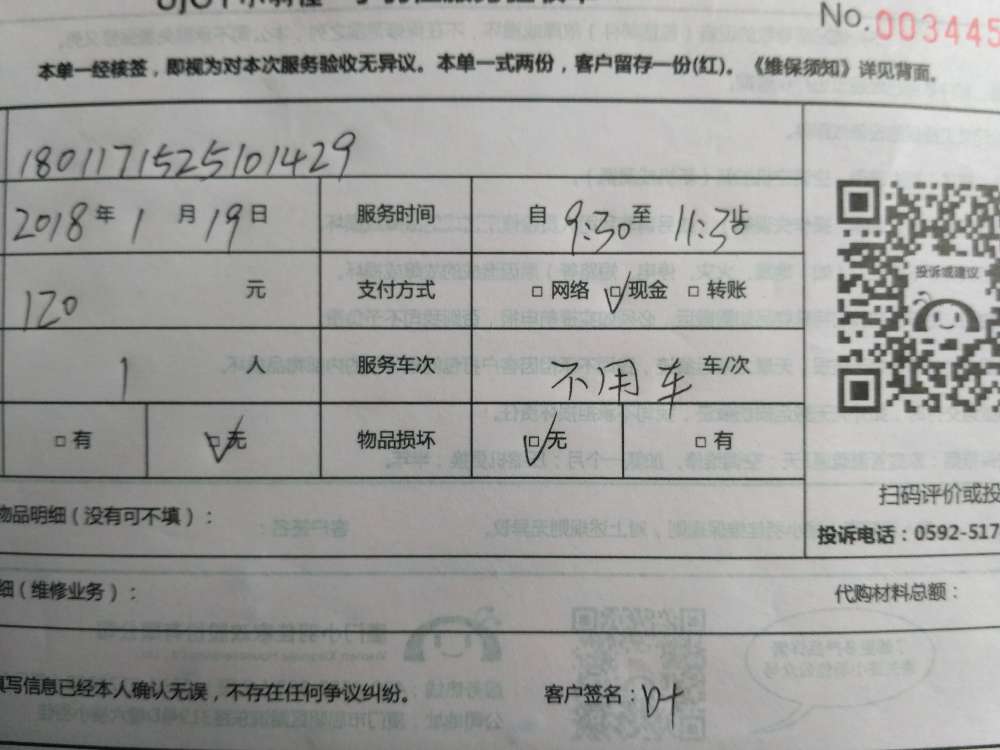 No.003445
本单一经核签，即视为对本次服务验收无异议。本单一式两份，客户留存一份(红)。《维保须知》详见背面。
1801171525101429
2018年1月19日 服务时间 自9:30至11:35
120元 支付方式 □网络 ☑现金 □转账
投诉或建议
1人 服务车次 不用车 车/次
□有 ☑无 物品损坏 ☑无 □有
扫码评价或投
物品明细（没有可不填）：
投诉电话：0592-517
细（维修业务）： 代购材料总额：
填写信息已经本人确认无误，不存在任何争议纠纷。 客户签名：